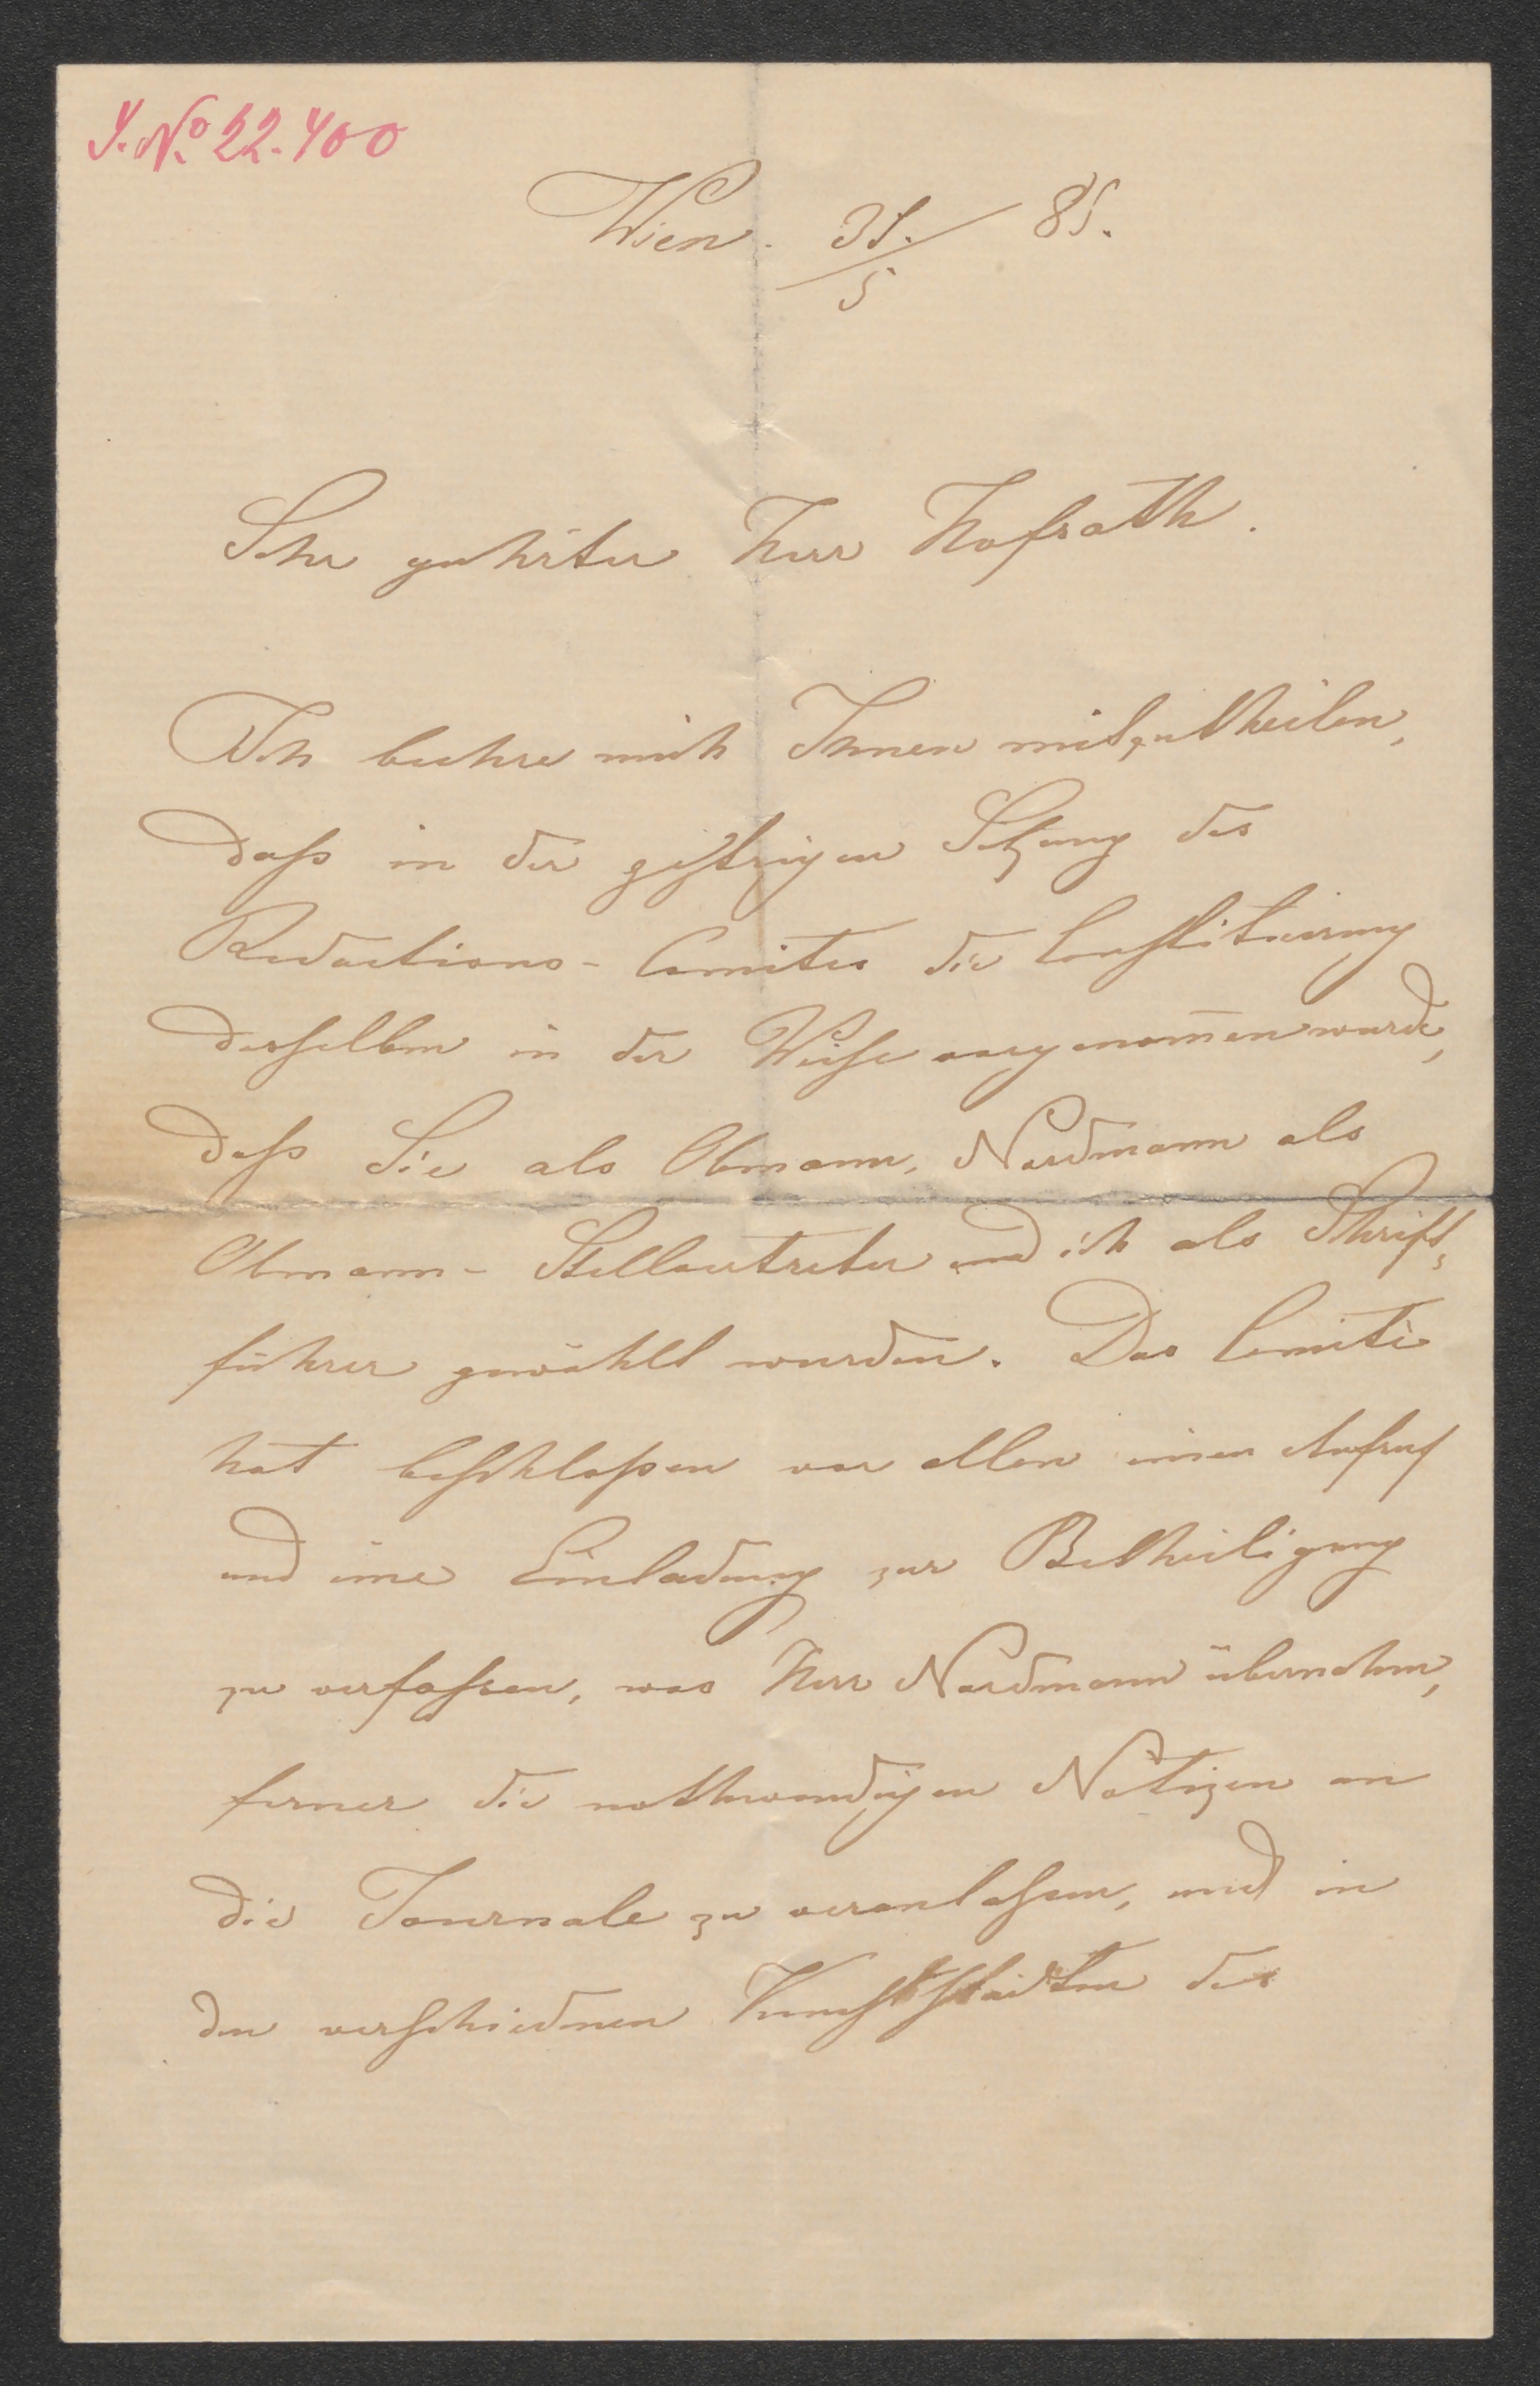 J. No. 22.400
Wien. 31./5 85.
Sehr geehrter Herr Hofrath.
Ich beehre mich Ihnen mitzutheilen,
daß in der gestrigen Sitzung des
Redactions-Comites die Constituirung
desselben in der Weise vorgenom̅en wurde,
daß Sie als Obmann, Nordmann als
Obmann-Stellvertreter und ich als Schrift-
führer gewählt wurden. Das Comité
hat beschloßen vor allen einen Aufruf
und eine Einladung zur Betheiligung
zu verfassen, was Herr Nordmann übernahm,
ferner die nothwendigen Notizen an
die Journale zu veranlassen, und in
den verschiedenen Kunststädten des